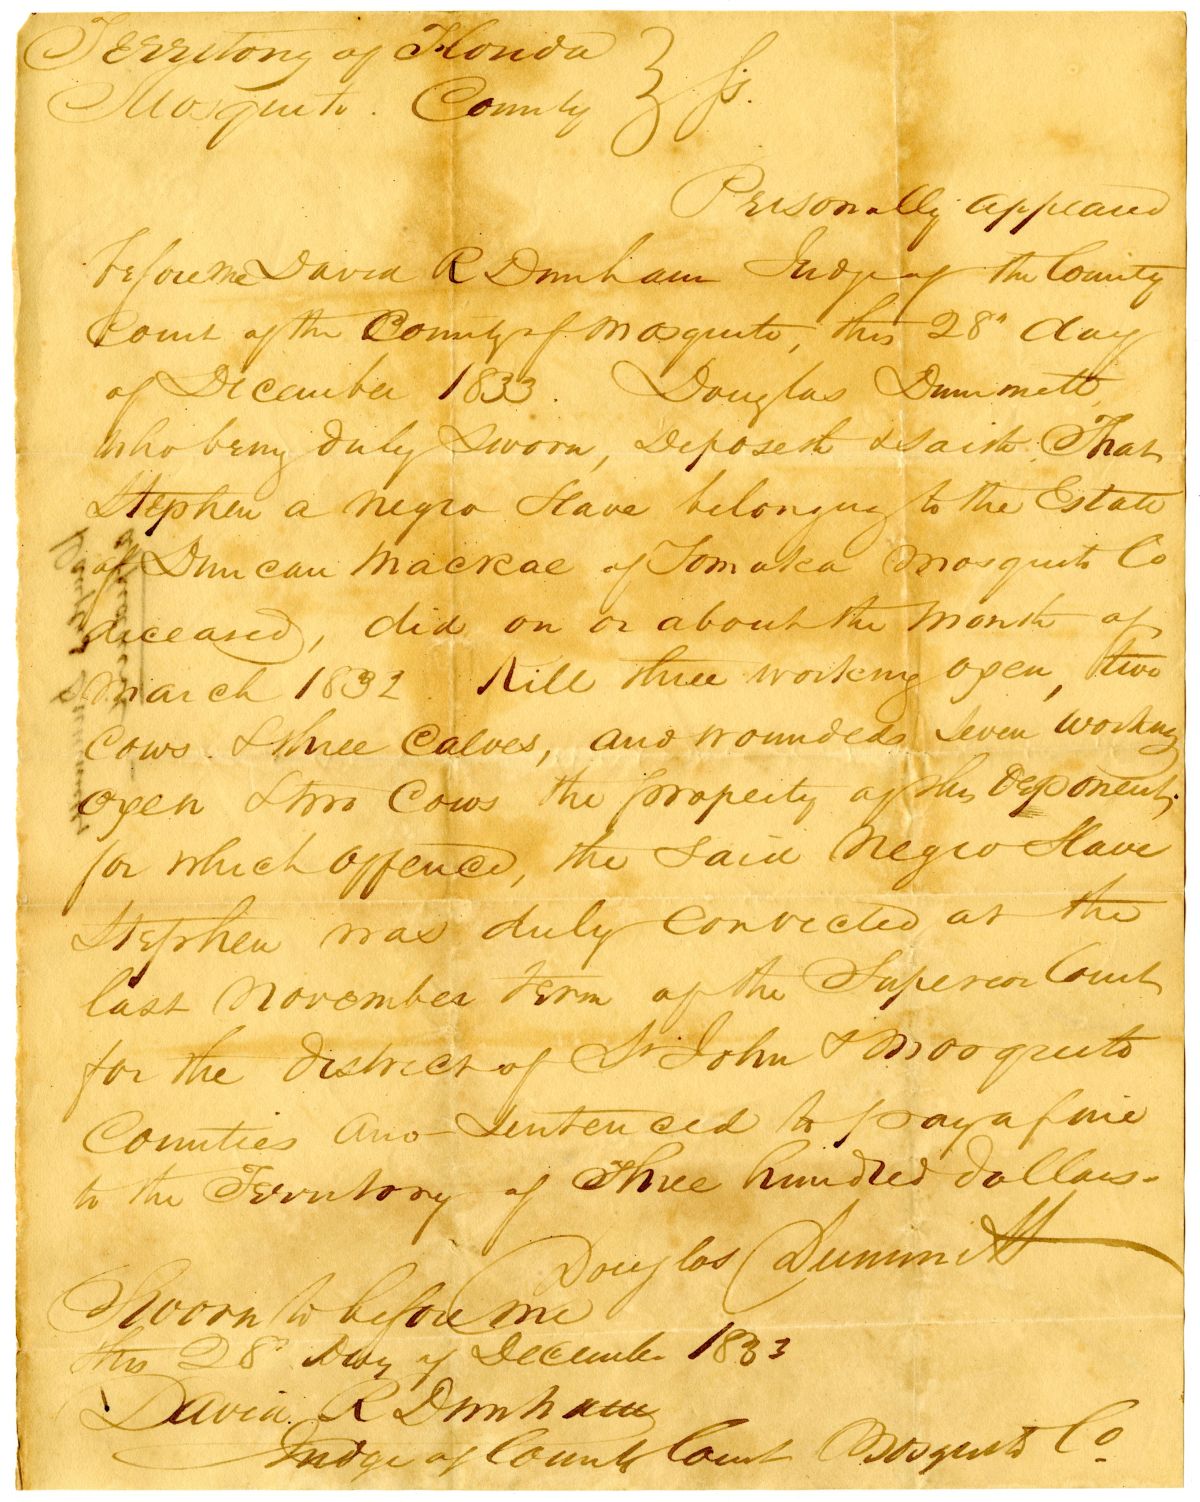 Territory of Florida
Mosquito County } ss.
Personally appeared
before me David R Dunham Judge of the County
Court of the County of Mosquito, this 28th day
of December 1833. Douglas Dummett,
who being duly sworn, deposeth & saith, That
Stephen a negro Slave belonging to the Estate
of Duncan MacRae of Tomoka Mosquito Co
deceased, did on or about the month of
March 1832 Kill three working oxen, two
Cows & three Calves, and wounded seven working
oxen & two Cows the property of this deponent;
for which offence, the said Negro Slave
Stephen was duly convicted at the
last November term of the Superior Court
for the district of St John & Mosquito
Counties and Sentenced to pay a fine
to the Territory of Three hundred dollars.
Douglas Dummett
Sworn to before me
this 28th Day of December 1833
David R Dunham
Judge of County Court Mosquito Co.